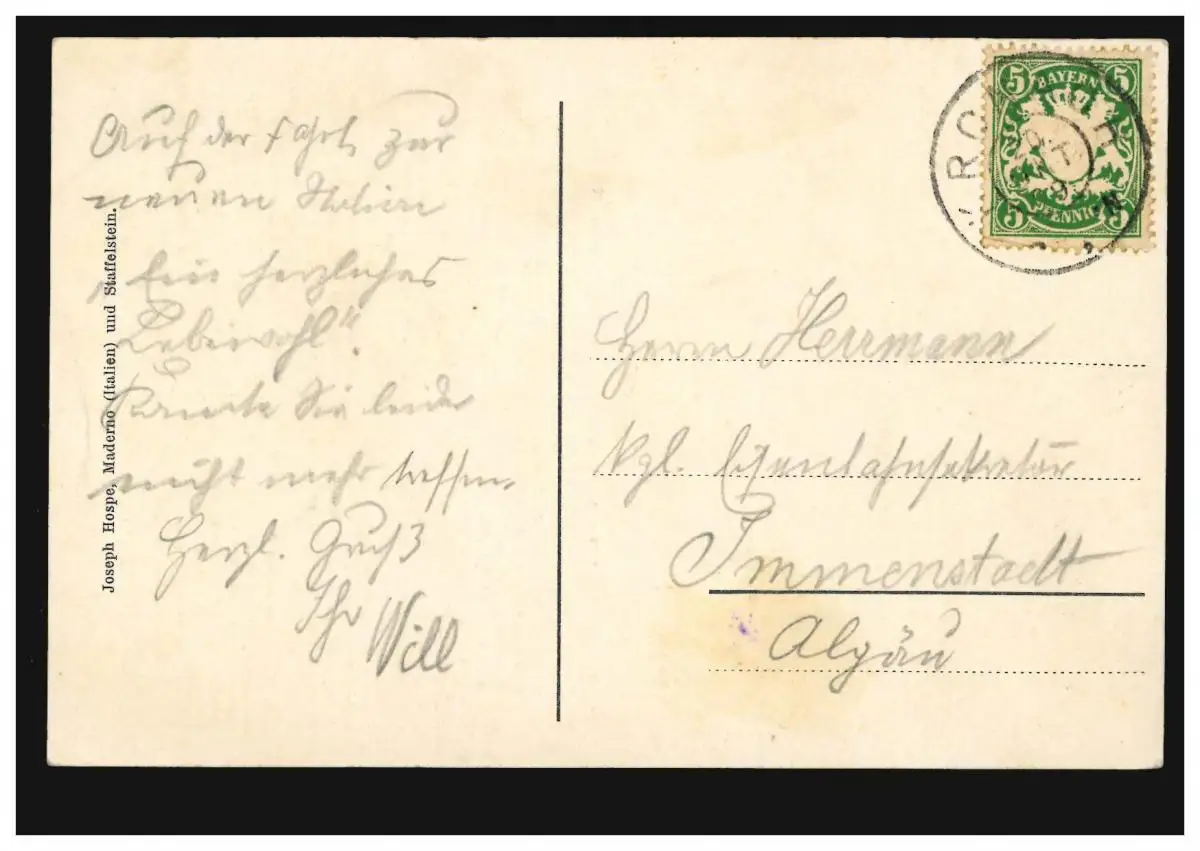 Auf der Fahrt zur
neuen Station
„Ein herzliches
Lebewohl“.
Konnte Sie leider
nicht mehr treffen.
Herzl. Gruß
Ihr Will
Joseph Hospe, Maderno (Italien) und Staffelstein.
5 BAYERN 5
5 PFENNIG 5
Herrn Herrmann
kgl. Eisenbahnsekretär
Immenstadt
Algäu